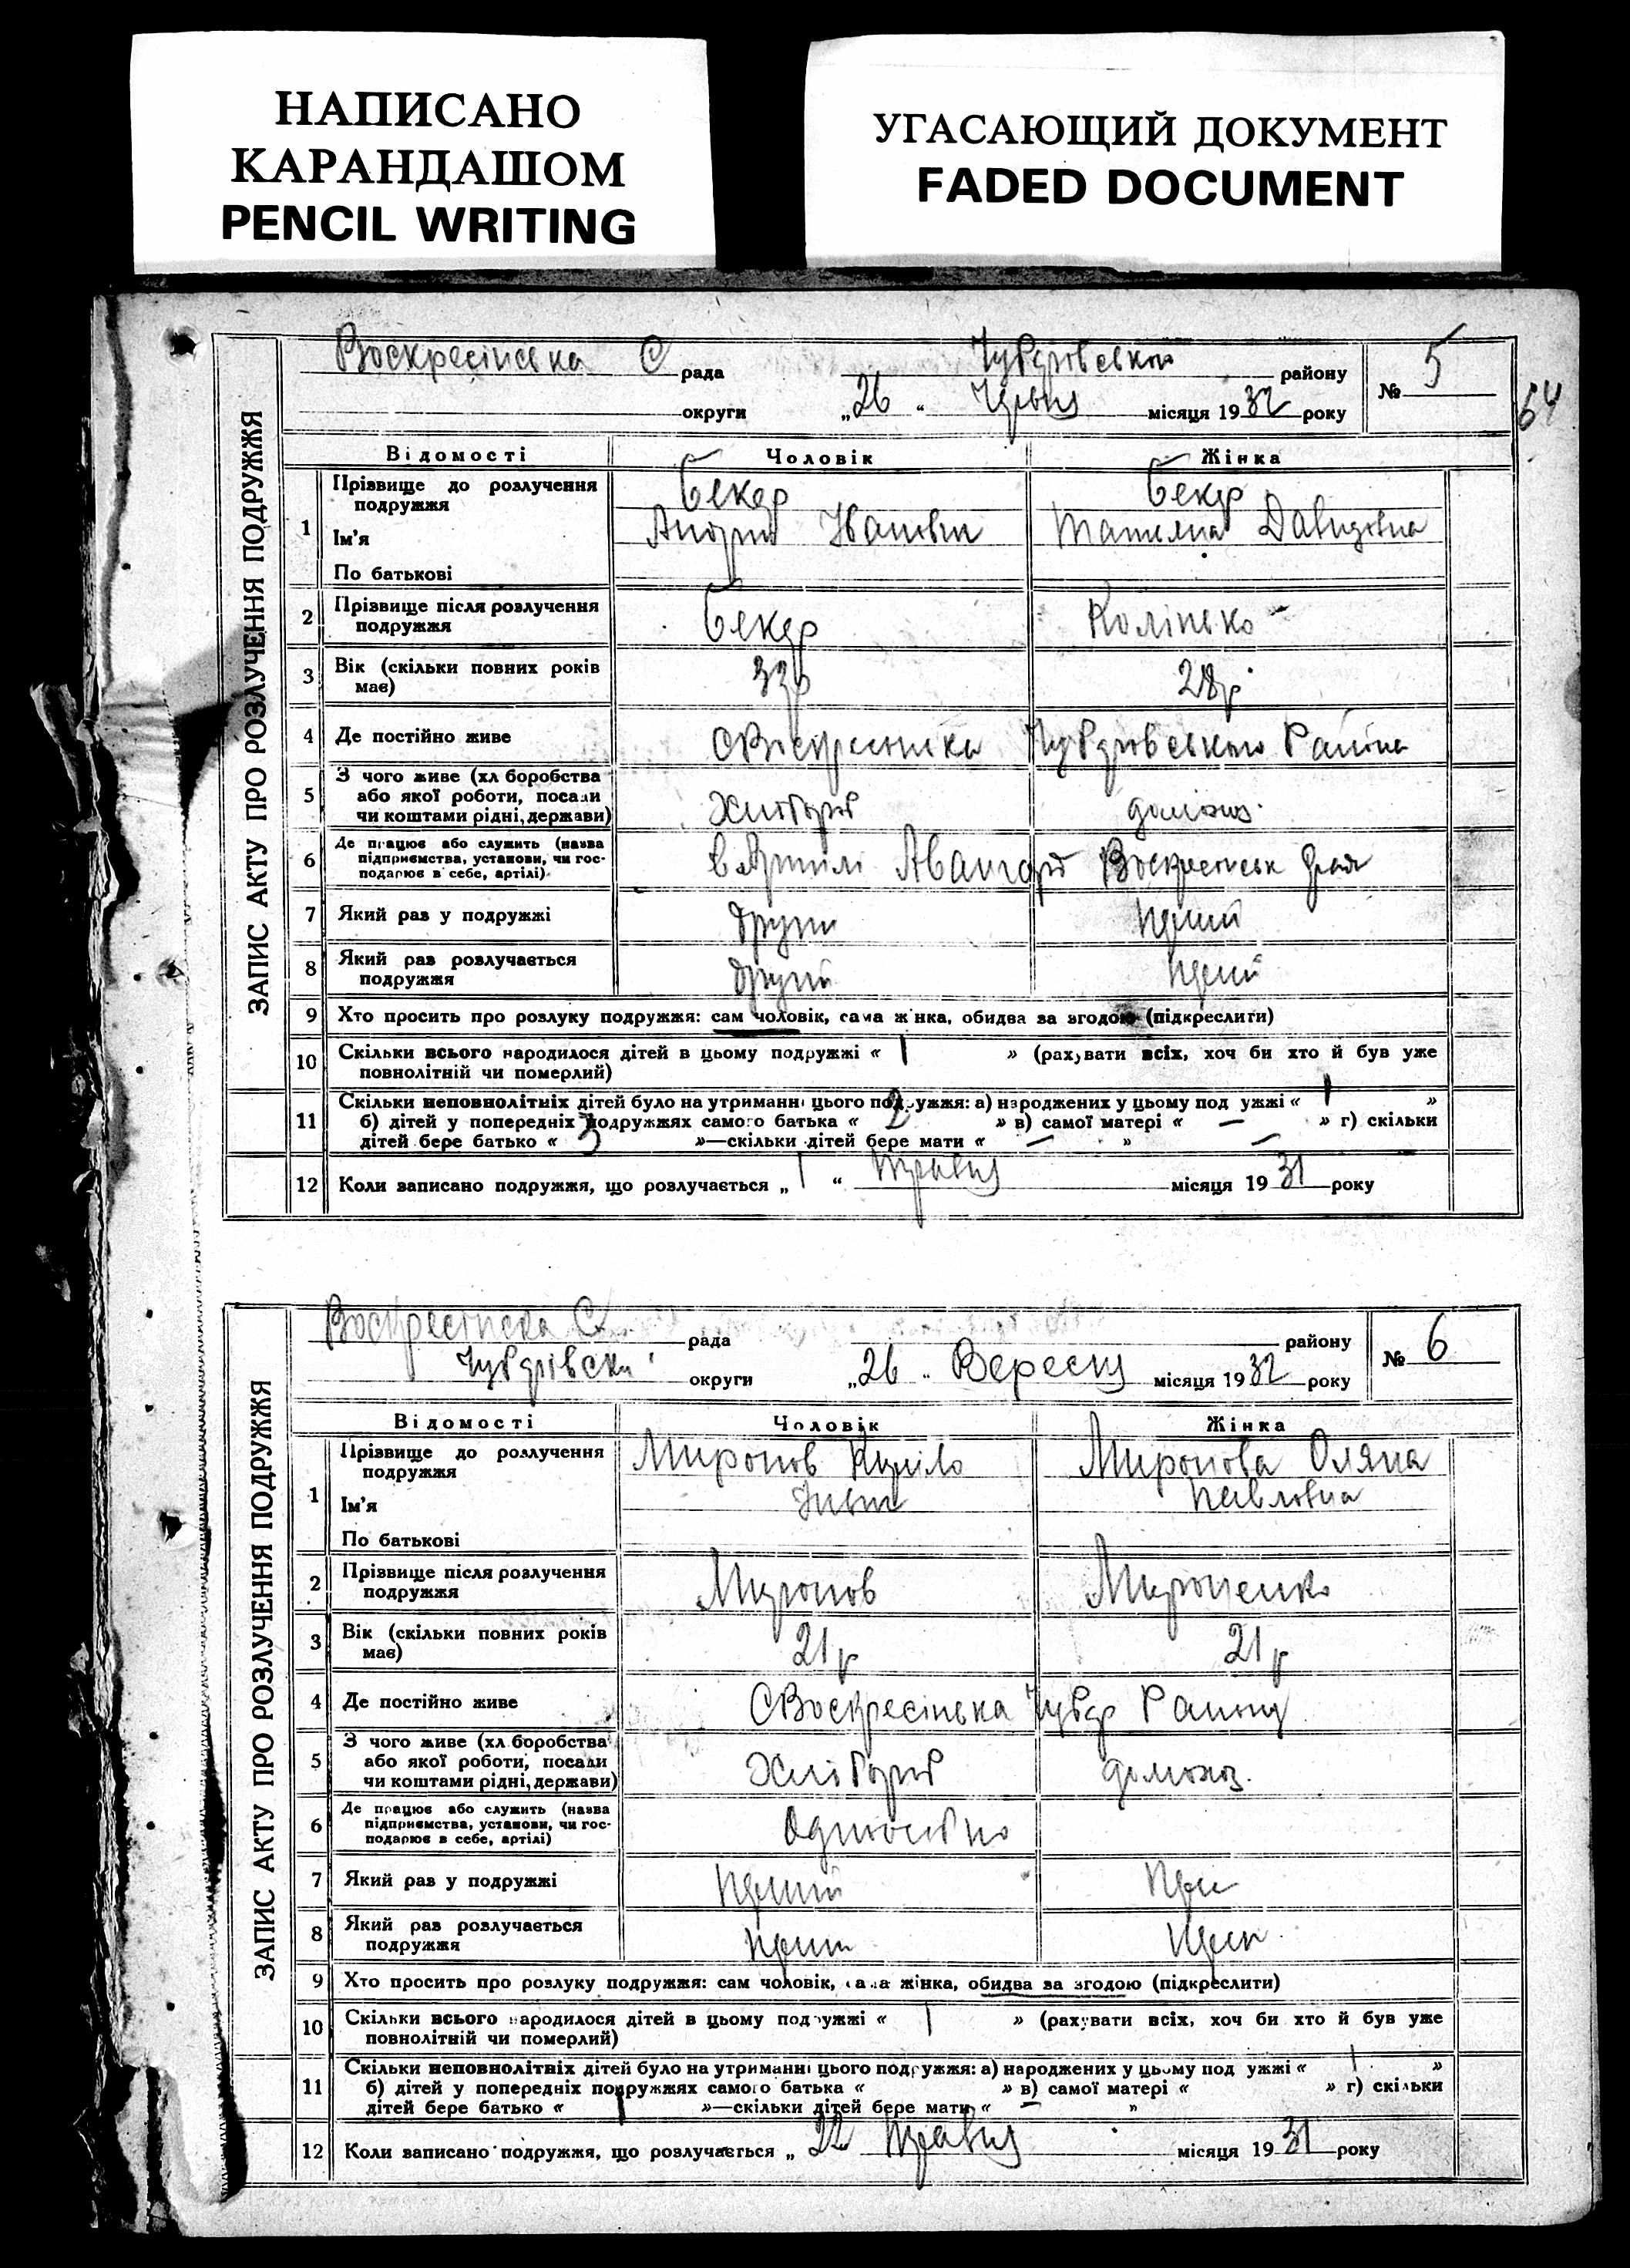 НАПИСАНО
КАРАНДАШОМ
PENCIL WRITING
УГАСАЮЩИЙ ДОКУМЕНТ
FADED DOCUMENT
ЗАПИС АКТУ ПРО РОЗЛУЧЕННЯ ПОДРУЖЖЯ
Воскресінська С рада району № 5
64
округи „26“ Червня місяця 1932 року
Відомості Чоловік Жінка
1 Прізвище до розлучення подружжя Бекер Бекер
Ім'я Андрій Іванович Татьяна Давидовна
По батькові
2 Прізвище після розлучення подружжя Бекер Колінько
3 Вік (скільки повних років має) 33р 28р
4 Де постійно живе
5 З чого живе (хл боробства або якої роботи, посади чи коштами рідні, держави) Хлібороб домохоз.
6 Де працює або служить (назва підприємства, установи, чи господарює в себе, артілі) в Артилі Авангард
7 Який раз у подружжі другий перший
8 Який раз розлучається подружжя другий перший
9 Хто просить про розлуку подружжя: сам чоловік, сама жінка, обидва за згодою (підкреслити)
10 Скільки всього народилося дітей в цьому подружжі « 1 » (рахувати всіх, хоч би хто й був уже
повнолітній чи померлий)
11 Скільки неповнолітніх дітей було на утриманні цього подружжя: а) народжених у цьому под ужжі « 1 »
б) дітей у попередніх подружжях самого батька « 2 » в) самої матері « — » г) скільки
дітей бере батько « 3 »—скільки дітей бере мати « — » —
12 Коли записано подружжя, що розлучається „ 1 “ Травня місяця 1931 року
ЗАПИС АКТУ ПРО РОЗЛУЧЕННЯ ПОДРУЖЖЯ
Воскресінска С рада району № 6
округи „26 „ Вересня місяця 1932 року
Відомості Чоловік Жінка
1 Прізвище до розлучення подружжя Миронов Кирило Миронова Оляна
Ім'я Павловна
По батькові
2 Прізвище після розлучення подружжя Миронов Мироненко
3 Вік (скільки повних років має) 21р 21р
4 Де постійно живе С Воскресінька
5 З чого живе (хл боробства або якої роботи, посади чи коштами рідні, держави) Хлібороб домохоз.
6 Де працює або служить (назва підприємства, установи, чи господарює в себе, артілі) Одноосібно
7 Який раз у подружжі перший
8 Який раз розлучається подружжя перший
9 Хто просить про розлуку подружжя: сам чоловік, сама жінка, обидва за згодою (підкреслити)
10 Скільки всього народилося дітей в цьому подружжі « 1 » (рахувати всіх, хоч би хто й був уже
повнолітній чи померлий)
11 Скільки неповнолітніх дітей було на утриманні цього подружжя: а) народжених у цьому под ужжі « 1 »
б) дітей у попередніх подружжях самого батька « » в) самої матері « » г) скільки
дітей бере батько « 1 »—скільки дітей бере мати « — »
12 Коли записано подружжя, що розлучається „ 22 Травня місяця 1931 року